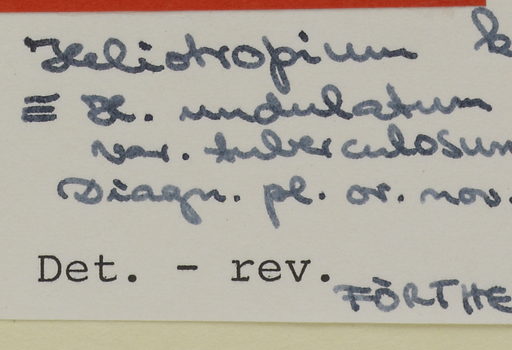 Heliotropium
≡ H. undulatum
var. tuberculosum
Diagn. pl. or. nov.
Det. - rev. FÖRTHE